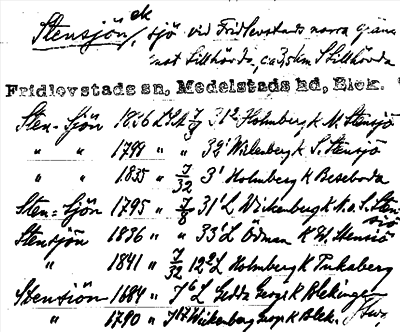 ek
Stensjön, sjö vid Fridlevstads norra gräns
mot Sillhövda, ca 3,5 km S Sillhövda
Fridlevstads sn, Medelstads hd, Blek.
Sten-Sjön 1826 7/8 31² Holmberg K N. Stensjö
" " 1799 " " 32¹ Wikenberg K S. Stensjö
" " 1835 " 7/32 3¹ Holmberg K Beseboda
Sten-Sjön 1795 " 7/8 31¹ L Wikenberg K N. o S. Sten-
sjö
Stensjön 1836 " " 33² L Ödman K St. Stensjö
" 1841 " 7/32 12² L Holmberg K Tukaberg
Stensiön 1684 " 7⁶ L Gedda Geogr K Blekinge
" 1790 " Wikenberg Geogr K Blek.